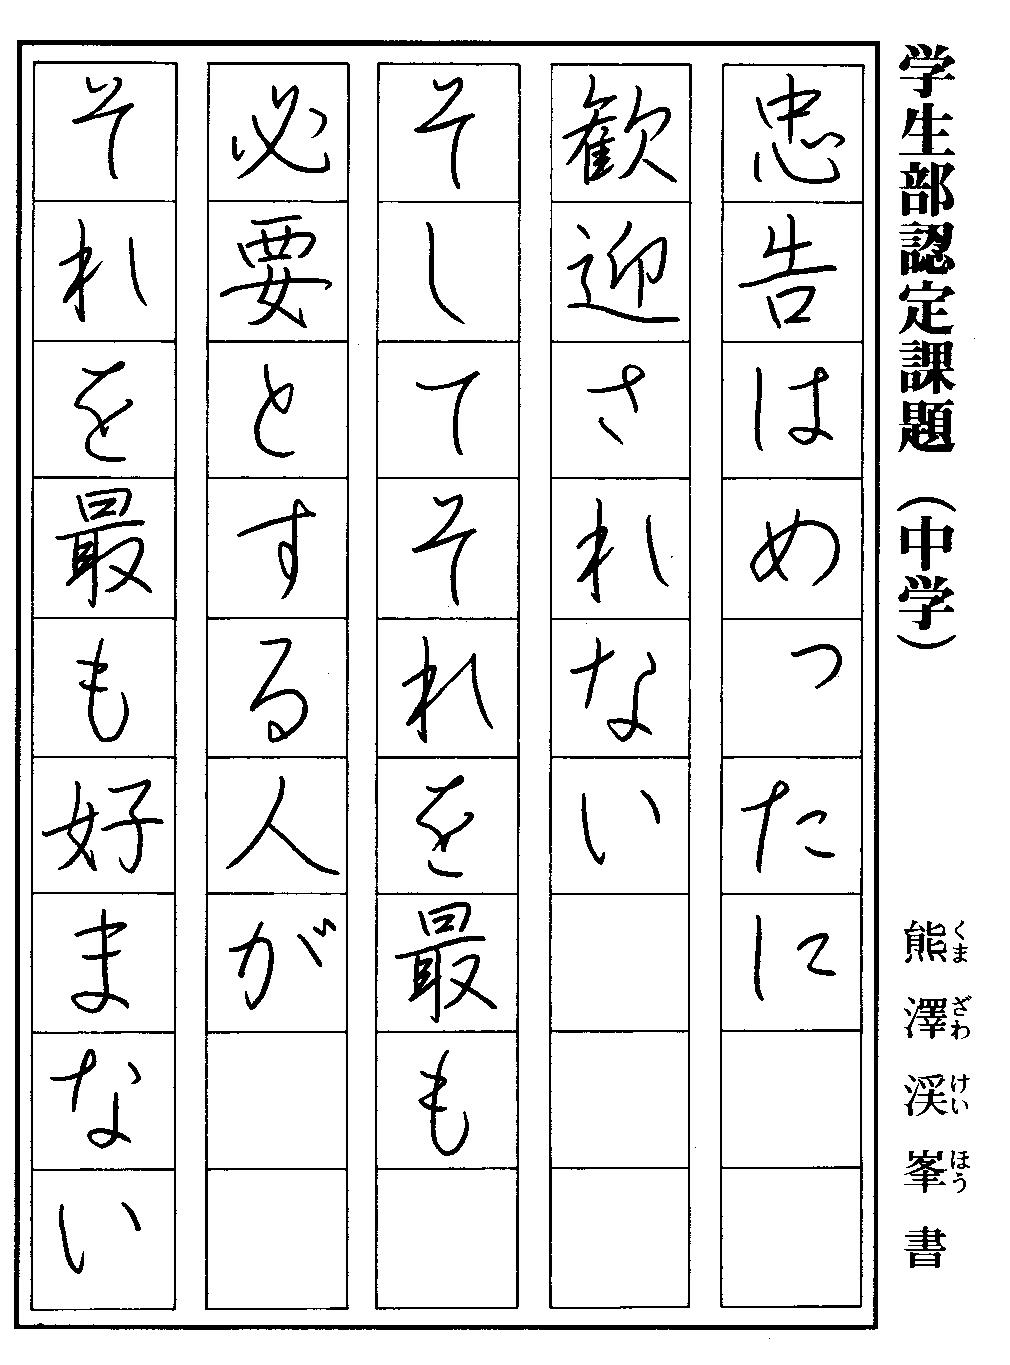 学生部認定課題（中学）
熊澤渓峯書
くまざわけいほう
忠告はめったに
歓迎されない
そしてそれを最も
必要とする人が
それを最も好まない